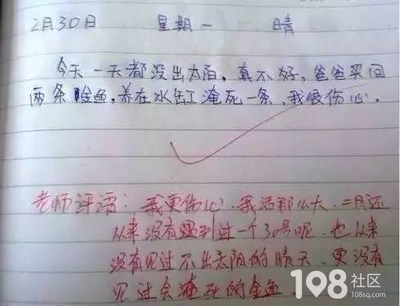 2月30日 星期一 晴
今天一天都没出太阳,真不好,爸爸买回
两条金鱼,养在水缸淹死一条,我很伤心.
老师评语:我更伤心,我活那么大,二月还
从来没有遇到过一个30号呢,也从来
没有见过不出太阳的晴天,更没有
见过会淹死的金鱼.
108社区
108sq.com